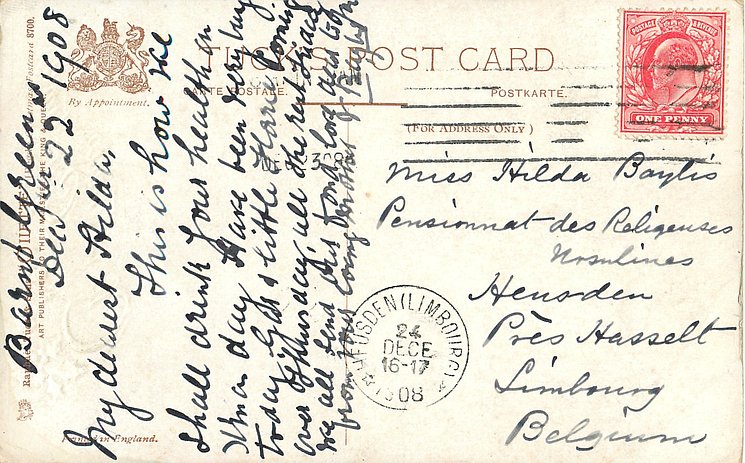 TUCK'S POST CARD
CARTE POSTALE.
POSTKARTE.
(FOR ADDRESS ONLY)
By Appointment.
POSTAGE & REVENUE
ONE PENNY
Barnt Green
Dec 22 1908
My dearest Hilda,
This is how we
Shall drink your health on
Xmas day. Have been very busy
today. Gas & little Horrie coming
over Xmas day, all the rest Sunday
We all send best fond love and
from your loving Mother
Miss Hilda Baylis
Pensionnat des Religieuses
Ursulines
Heusden
Près Hasselt
Limbourg
Belgium
HEUSDEN (LIMBOURG)
24
DECE
16-17
1908
ART PUBLISHERS TO THEIR MAJESTIES THE KING & QUEEN
Postcard 8700.
Printed in England.